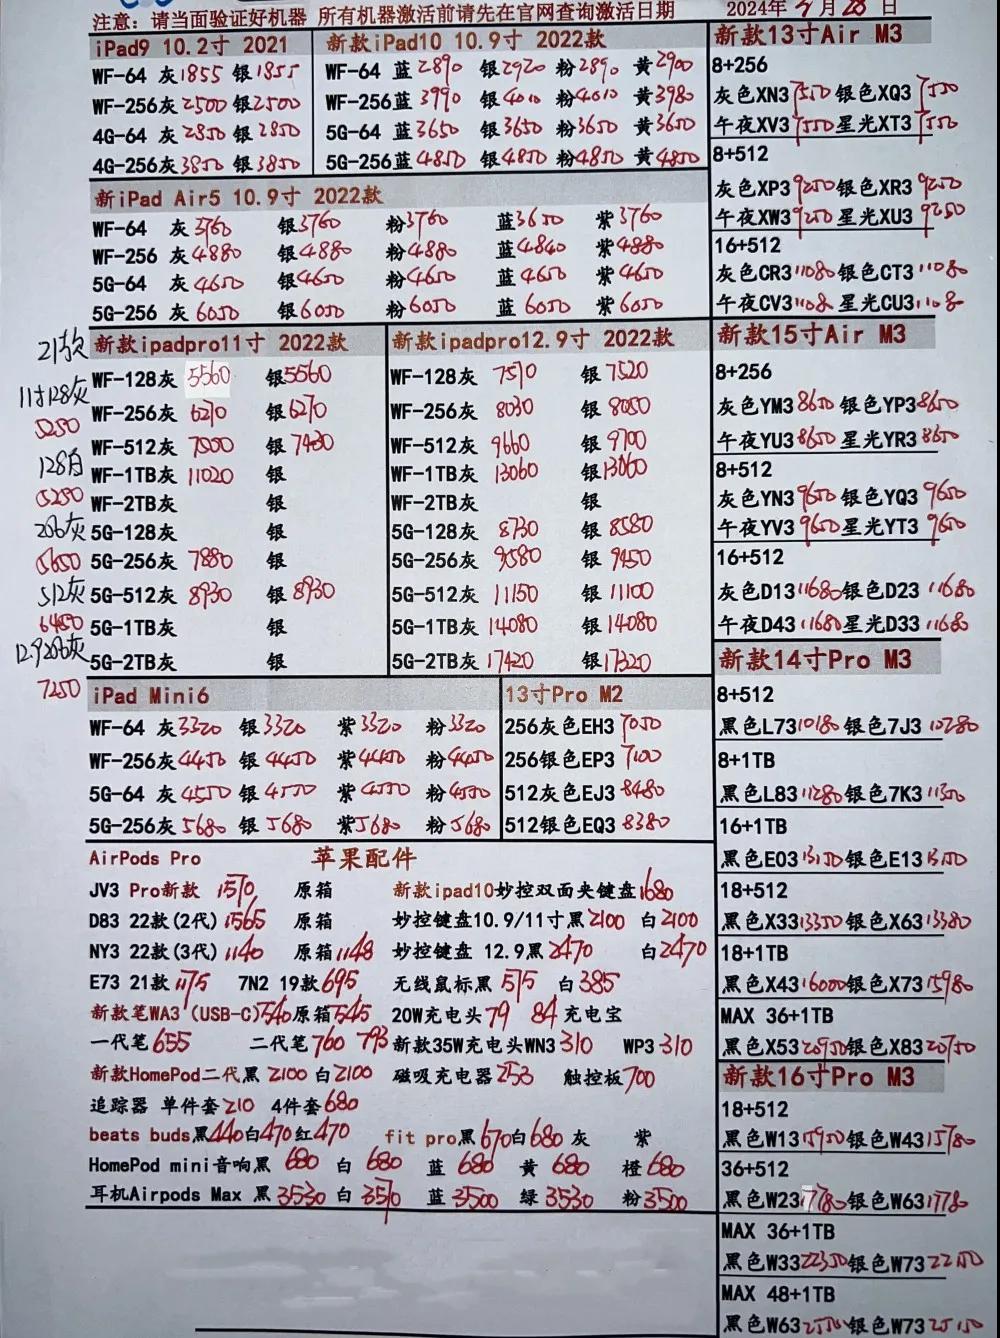 注意: 请当面验证好机器 所有机器激活前请先在官网查询激活日期
2024年 月 28 日
iPad9 10.2寸 2021
WF-64 灰1855 银1855
WF-256灰2500 银2500
4G-64 灰2850 银2850
4G-256灰3850 银3850
新款iPad10 10.9寸 2022款
WF-64 蓝2890 银2920 粉2890 黄2900
WF-256蓝3990 银4010 粉4010 黄3980
5G-64 蓝3650 银3650 粉3650 黄3650
5G-256蓝4850 银4850 粉4850 黄4850
新iPad Air5 10.9寸 2022款
WF-64 灰3760 银3760 粉3760 蓝3650 紫3760
WF-256 灰4880 银4880 粉4880 蓝4840 紫4880
5G-64 灰4650 银4650 粉4650 蓝4650 紫4650
5G-256 灰6050 银6050 粉6050 蓝6050 紫6050
21款
11寸128灰
5250
128白
5250
256灰
5650
512灰
6450
12.9 256灰
7250
新款ipadpro11寸 2022款
WF-128灰 5560 银5560
WF-256灰 6270 银6270
WF-512灰 7500 银7480
WF-1TB灰 11020 银
WF-2TB灰 银
5G-128灰 银
5G-256灰 7880 银
5G-512灰 8930 银8930
5G-1TB灰 银
5G-2TB灰 银
新款ipadpro12.9寸 2022款
WF-128灰 7510 银7520
WF-256灰 8030 银8050
WF-512灰 9660 银9700
WF-1TB灰 13060 银13060
WF-2TB灰 银
5G-128灰 8730 银8580
5G-256灰 9580 银9450
5G-512灰 11150 银11100
5G-1TB灰14080 银14080
5G-2TB灰17420 银17320
iPad Mini6
WF-64 灰3320 银3320 紫3320 粉3320
WF-256灰4450 银4450 紫4450 粉4450
5G-64 灰4550 银4550 紫4550 粉4550
5G-256灰5680 银5680 紫5680 粉5680
13寸Pro M2
256灰色EH3 7050
256银色EP3 7100
512灰色EJ3 8480
512银色EQ3 8380
AirPods Pro 苹果配件
JV3 Pro新款 1510 原箱 新款ipad10妙控双面夹键盘1680
D83 22款(2代)1565 原箱 妙控键盘10.9/11寸黑2100 白2100
NY3 22款(3代)1140 原箱1148 妙控键盘 12.9黑2470 白2470
E73 21款1175 7N2 19款695 无线鼠标黑 515 白385
新款笔WA3 (USB-C)540原箱545 20W充电头79 84 充电宝
一代笔655 二代笔760 793 新款35W充电头WN3 310 WP3 310
新款HomePod二代黑 2100 白2100 磁吸充电器253 触控板700
追踪器 单件套210 4件套680
beats buds黑440白470红470 fit pro黑670白680 灰 紫
HomePod mini音响黑 680 白 680 蓝 680 黄 680 橙680
耳机Airpods Max 黑3530 白 3510 蓝 3500 绿 3530 粉3500
新款13寸Air M3
8+256
灰色XN3 7550 银色XQ3 7550
午夜XV3 7550 星光XT3 7550
8+512
灰色XP3 9250 银色XR3 9250
午夜XW3 9250 星光XU3 9250
16+512
灰色CR3 11080 银色CT3 11080
午夜CV3 11080 星光CU3 11080
新款15寸Air M3
8+256
灰色YM3 8650 银色YP3 8650
午夜YU3 8650 星光YR3 8650
8+512
灰色YN3 9650 银色YQ3 9650
午夜YV3 9650 星光YT3 9650
16+512
灰色D13 11680 银色D23 11680
午夜D43 11680 星光D33 11680
新款14寸Pro M3
8+512
黑色L73 10180 银色7J3 10280
8+1TB
黑色L83 11280 银色7K3 11350
16+1TB
黑色E03 13150 银色E13 13150
18+512
黑色X33 13350 银色X63 13380
18+1TB
黑色X43 16000 银色X73 15980
MAX 36+1TB
黑色X53 20950 银色X83 20750
新款16寸Pro M3
18+512
黑色W13 15950 银色W43 15780
36+512
黑色W23 17780 银色W63 17780
MAX 36+1TB
黑色W33 22350 银色W73 22150
MAX 48+1TB
黑色W63 银色W73